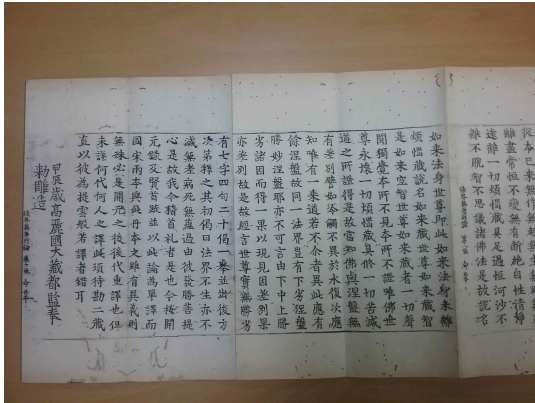 從本已来無作無起無生無
離盡常恒不變無有斷絕自性清淨
遠離一切煩惱藏具足過恒河沙不
離不脫智不思議諸佛法是故說名
如来法身世尊即此如来法身未離
煩惱藏說名如来藏世尊如来藏智
是如来空智世尊如来藏者一切聲
聞獨覺本所不見本所不證唯佛世
尊永壞一切煩惱藏具修一切苦滅
道之所證得是故當知佛與涅盤無
有差別譬如冷觸不異於水復次應
知唯有一乘道若不尒者異此應有
餘涅盤故同一法界豈有下劣涅盤
勝妙涅盤耶亦不可言由下中上勝
劣諸因而得一果以現見因差別果
亦差別故是故經言世尊實無勝劣
有七字四句二十偈一舉並出後方
次第釋之其初偈曰法界不生亦不
滅無老病死無蘊過由彼發勝菩提
心是故我今稽首礼者是也今撿開
元錄及賢首疏並以此論為單譯而
國宋兩本與此丹本文雖有異義則
無殊必是開元之後後代重譯也但
未詳何代何人之譯此須待勘二藏
直以彼為提雲般若譯者錯耳
甲辰歲高麗國大藏都監奉
勑雕造